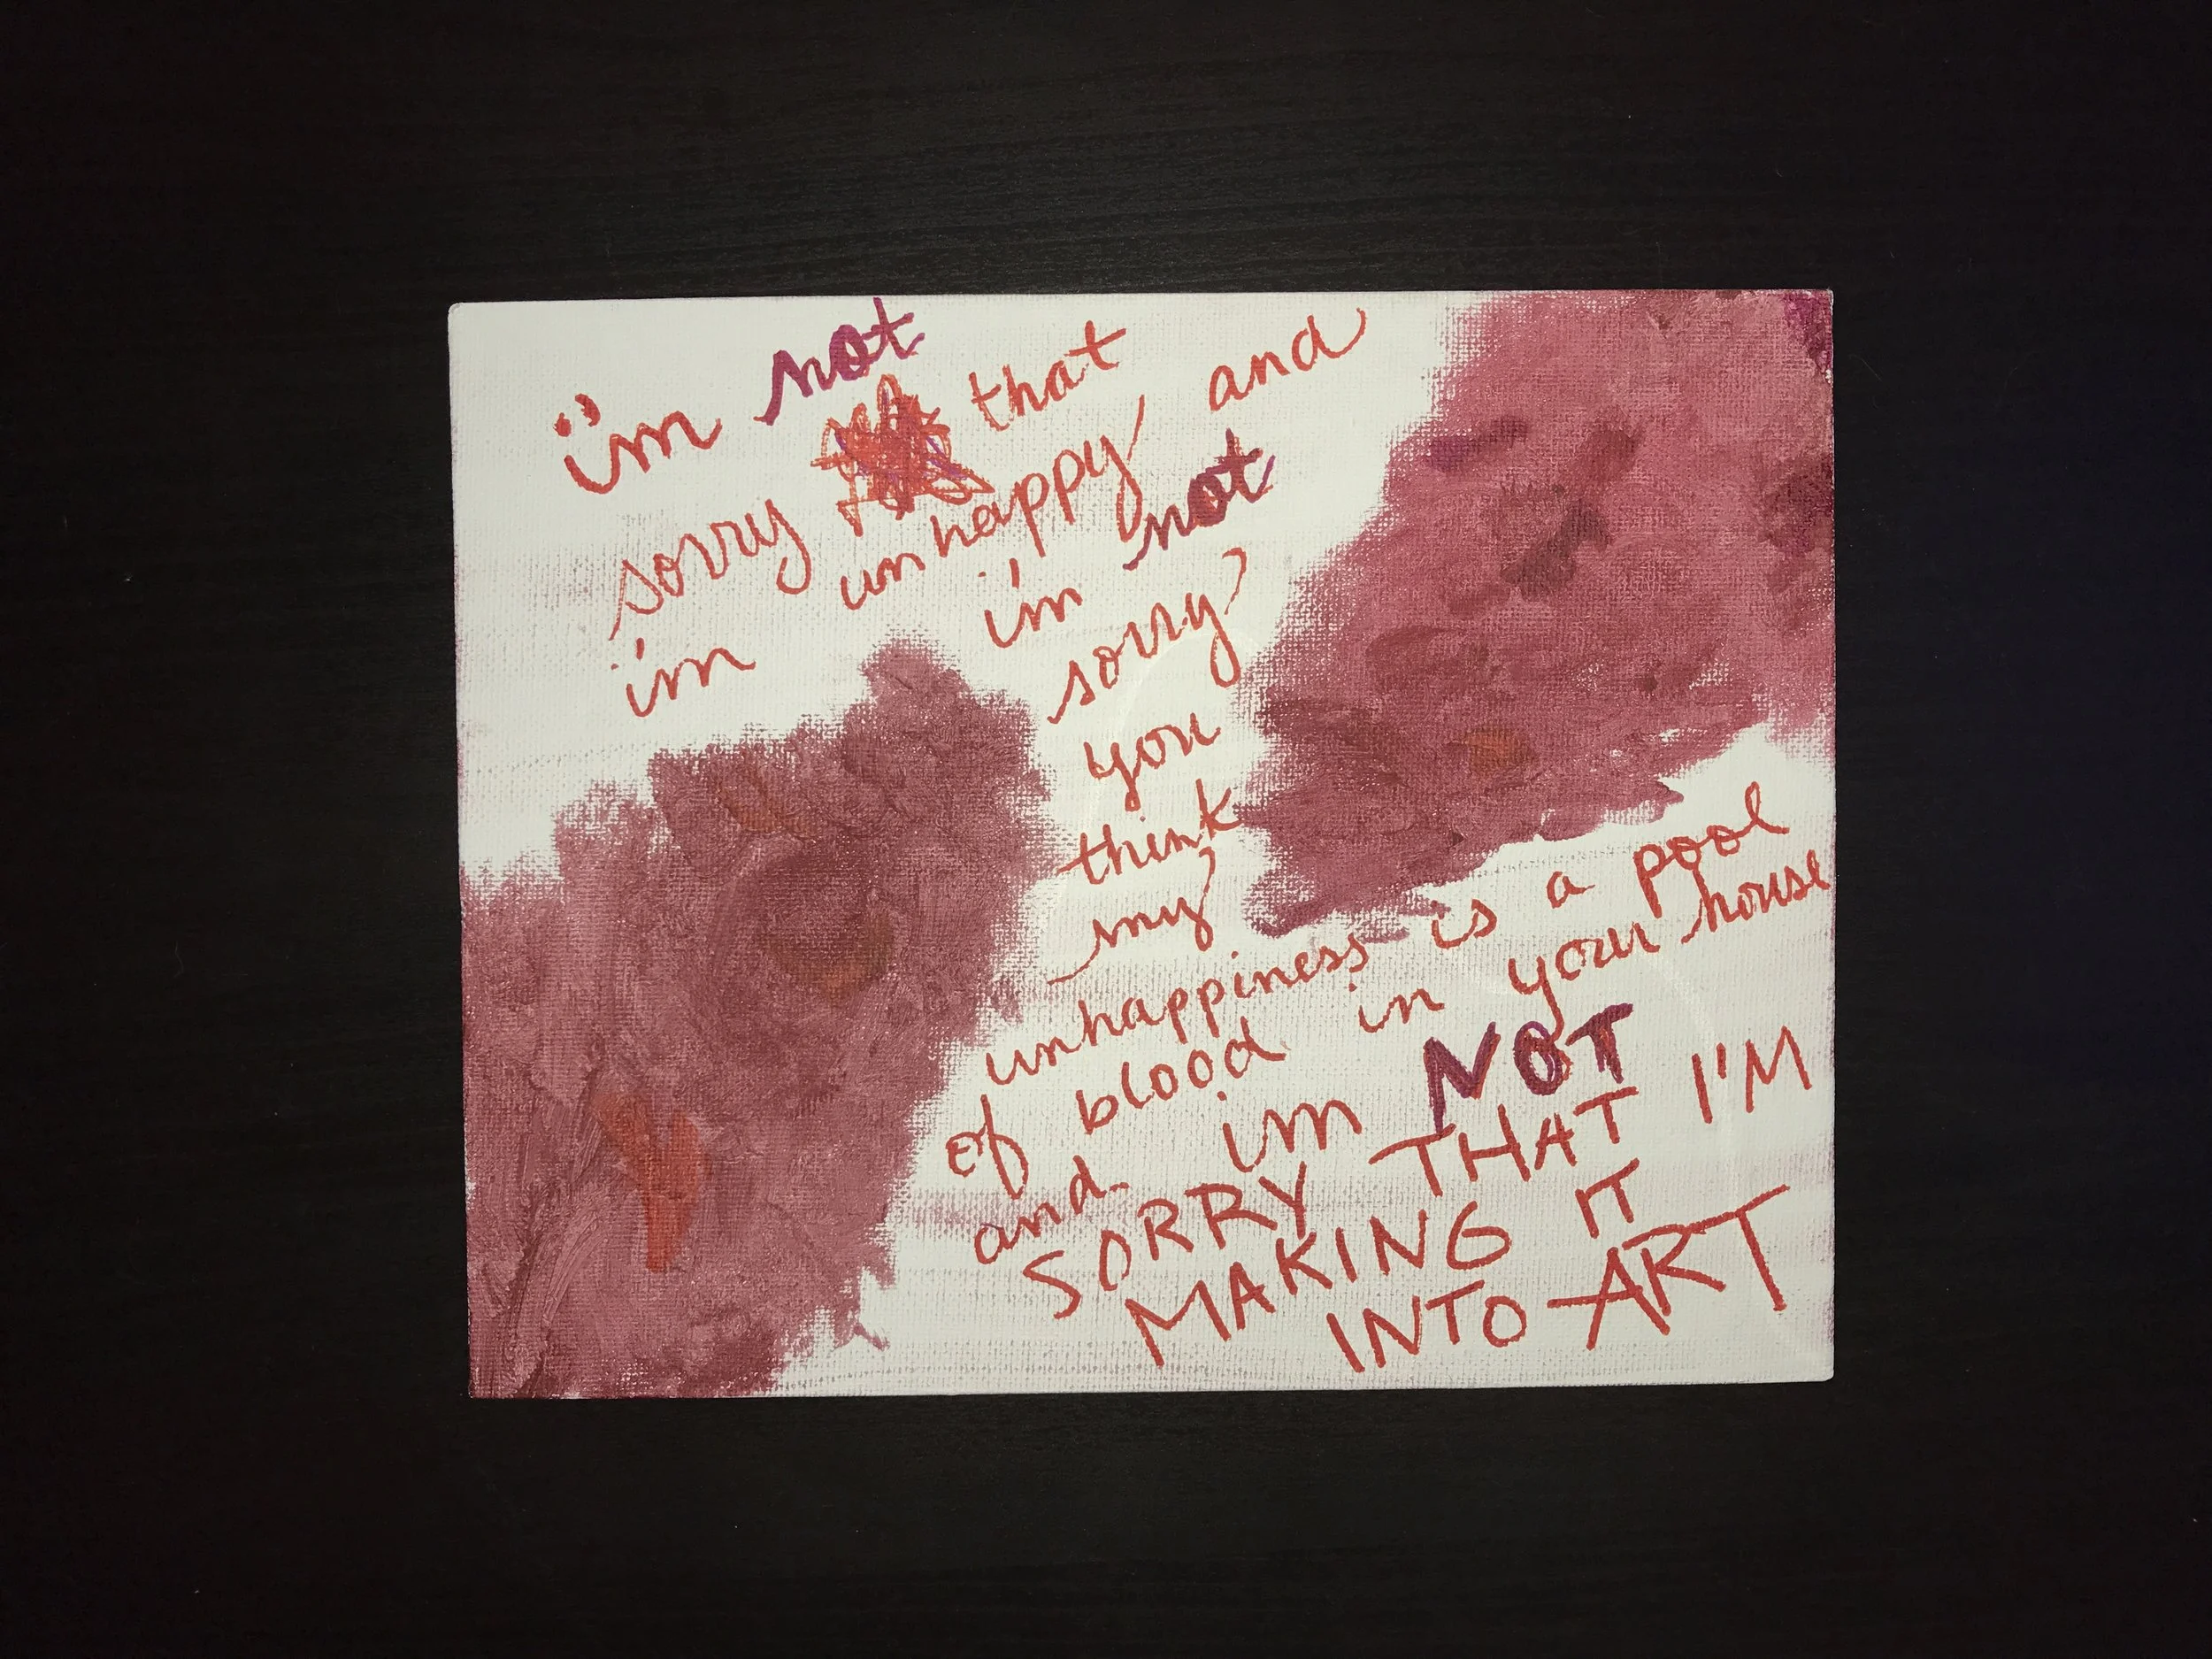 i'm not
sorry that
i'm unhappy and
i'm not
sorry
you
think
my
unhappiness is a pool
of blood in your house
and im NOT
SORRY THAT I'M
MAKING IT
INTO ART